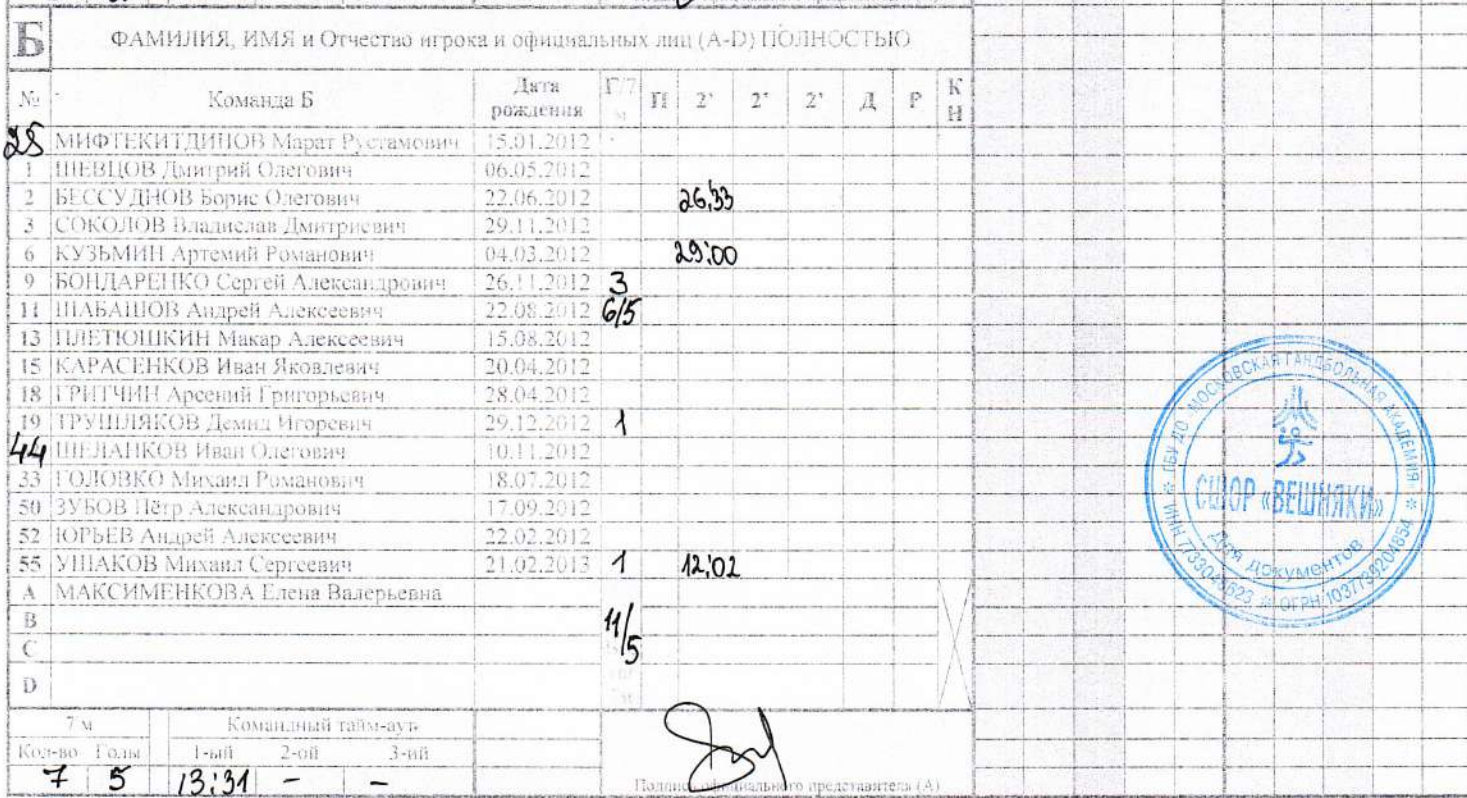 Б ФАМИЛИЯ, ИМЯ и Отчество игрока и официальных лиц (A-D) ПОЛНОСТЬЮ
№ Команда Б Дата рождения Г/7 м П 2' 2' 2' Д Р К Н
25 МИФТЕКИТДИНОВ Марат Рустамович 15.01.2012
1 ШЕВЦОВ Дмитрий Олегович 06.05.2012
2 БЕССУДНОВ Борис Олегович 22.06.2012 26,33
3 СОКОЛОВ Владислав Дмитриевич 29.11.2012
6 КУЗЬМИН Артемий Романович 04.03.2012 29:00
9 БОНДАРЕНКО Сергей Александрович 26.11.2012 3
11 ШАБАШОВ Андрей Алексеевич 22.08.2012 6/5
13 ПЛЕТЮШКИН Макар Алексеевич 15.08.2012
15 КАРАСЕНКОВ Иван Яковлевич 20.04.2012
18 ГРИТЧИН Арсений Григорьевич 28.04.2012
19 ТРУШЛЯКОВ Демид Игоревич 29.12.2012 1
44 ШЕЛАНКОВ Иван Олегович 10.11.2012
33 ГОЛОВКО Михаил Романович 18.07.2012
50 ЗУБОВ Пётр Александрович 17.09.2012
52 ЮРЬЕВ Андрей Алексеевич 22.02.2012
55 УШАКОВ Михаил Сергеевич 21.02.2013 1 12:02
A МАКСИМЕНКОВА Елена Валерьевна
B 11/5
C
D
7 м Командный тайм-аут
Кол-во Голы 1-ый 2-ой 3-ий
7 5 13:31 - -
Подпись официального представителя (A)
ГБУ ДО МОСКОВСКАЯ ГАНДБОЛЬНАЯ АКАДЕМИЯ
СШОР «ВЕШНЯКИ»
Для документов